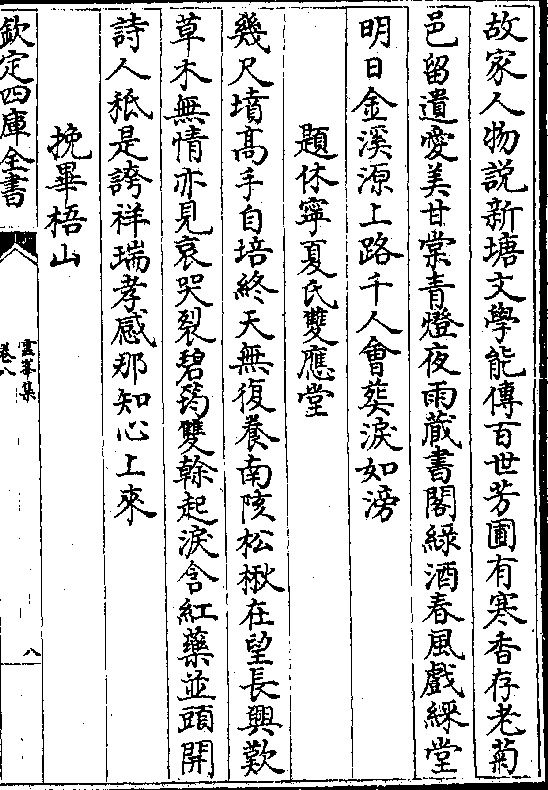 故家人物説新塘文學能傳百世芳圃有寒香存老菊
邑留遺愛美甘棠青燈夜雨藏書閣緑酒春風戲綵堂
明日金溪源上路千人會葬淚如滂
題休寧夏氏雙應堂
幾尺墳髙手自培終天無復養南陔松楸在望長興歎
草木無情亦見哀哭裂碧筠雙榦起淚含紅藥並頭開
詩人秪是誇祥瑞孝感那知心上來
挽畢梧山
欽定四庫全書
雲峯集
卷八
八